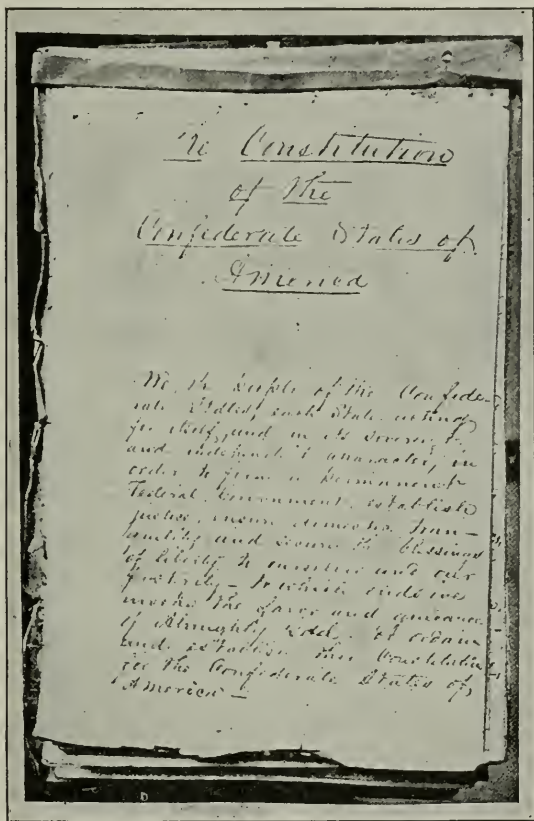 The Constitution
of the
Confederate States of
America
We, the People of the Confede-
rate States, each State acting
for itself, and in its sovereign
and independent character, in
order to form a permanent
Federal Government, establish
justice, insure domestic tran-
quility and secure the blessings
of liberty to ourselves and our
posterity — to which ends we
invoke the favor and guidance
of Almighty God, do ordain
and establish this Constitution
for the Confederate States of
America —